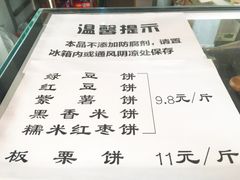 温馨提示
本品不添加防腐剂，请置
冰箱内或通风阴凉处保存
绿豆饼
红豆饼
紫薯饼 9.8元/斤
黑香米饼
糯米红枣饼
板栗饼 11元/斤